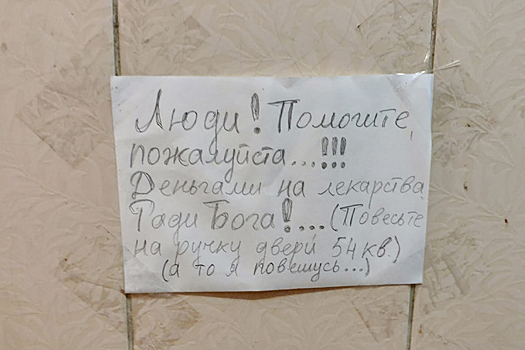 Люди! Помогите,
пожалуйста...!!!
Деньгами на лекарства.
Ради Бога!....(Повесьте
на ручку двери 54 кв.)
(а то я повешусь...)